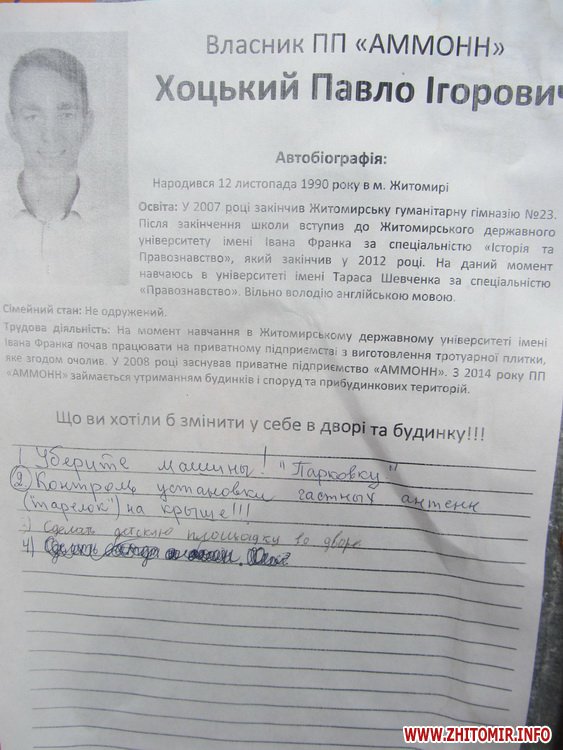 Власник ПП «АММОНН»
Хоцький Павло Ігорович
Автобіографія:
Народився 12 листопада 1990 року в м. Житомирі
Освіта: У 2007 році закінчив Житомирську гуманітарну гімназію №23.
Після закінчення школи вступив до Житомирського державного
університету імені Івана Франка за спеціальністю «Історія та
Правознавство», який закінчив у 2012 році. На даний момент
навчаюсь в університеті імені Тараса Шевченка за спеціальністю
«Правознавство». Вільно володію англійською мовою.
Сімейний стан: Не одружений.
Трудова діяльність: На момент навчання в Житомирському державному університеті імені
Івана Франка почав працювати на приватному підприємстві з виготовлення тротуарної плитки,
яке згодом очолив. У 2008 році заснував приватне підприємство «АММОНН». З 2014 року ПП
«АММОНН» займається утриманням будинків і споруд та прибудинкових територій.
Що ви хотіли б змінити у себе в дворі та будинку!!!
1 Уберите машины! "Парковку"
2) Контроль установки частных антенн
("тарелок") на крыше!!!
3) Сделать детскую площадку во дворе
4) Сделать
WWW.ZHITOMIR.INFO